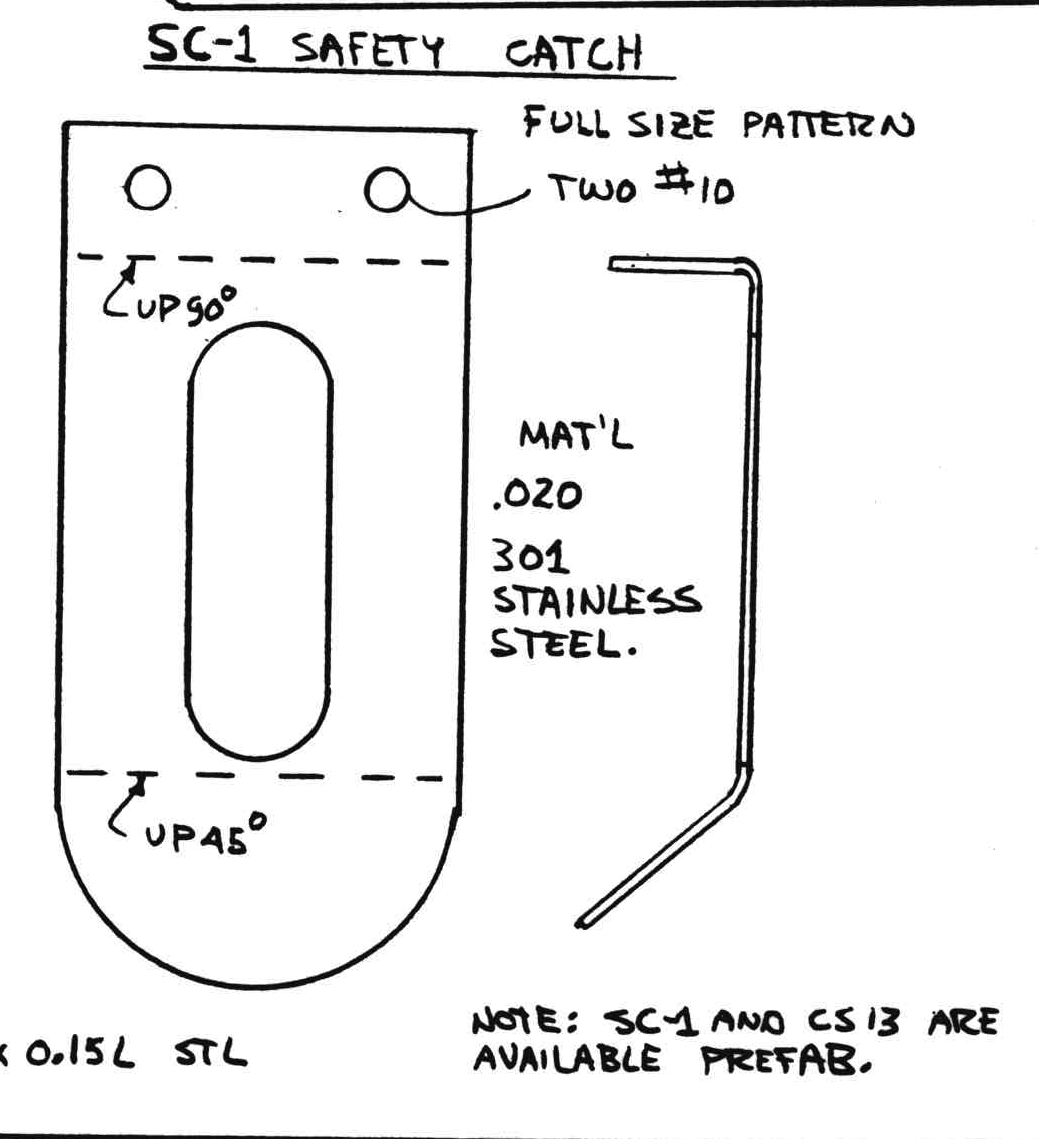 SC-1 SAFETY CATCH
FULL SIZE PATTERN
TWO #10
UP 90°
MAT'L
.020
301
STAINLESS
STEEL.
UP 45°
NOTE: SC-1 AND CS13 ARE
AVAILABLE PREFAB.
x 0.15L STL